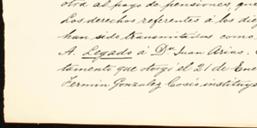 otra al pago de pensiones, que
Los derechos referentes á los die
han sido transmitidos como
A. Legado á Dn Juan Arias.
tamento que otorgó el 21 de Ene
Fermin Gonzalez Cosio instituye